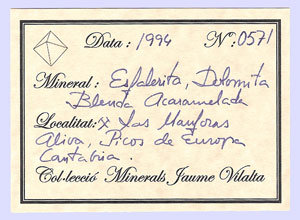 Data: 1994 Nº: 0571
Mineral: Esfalerita, Dolomita
Blenda Acaramelada
Localitat: Las Manforas
Aliva, Picos de Europa
Cantabria.
Col·lecció Minerals Jaume Vilalta